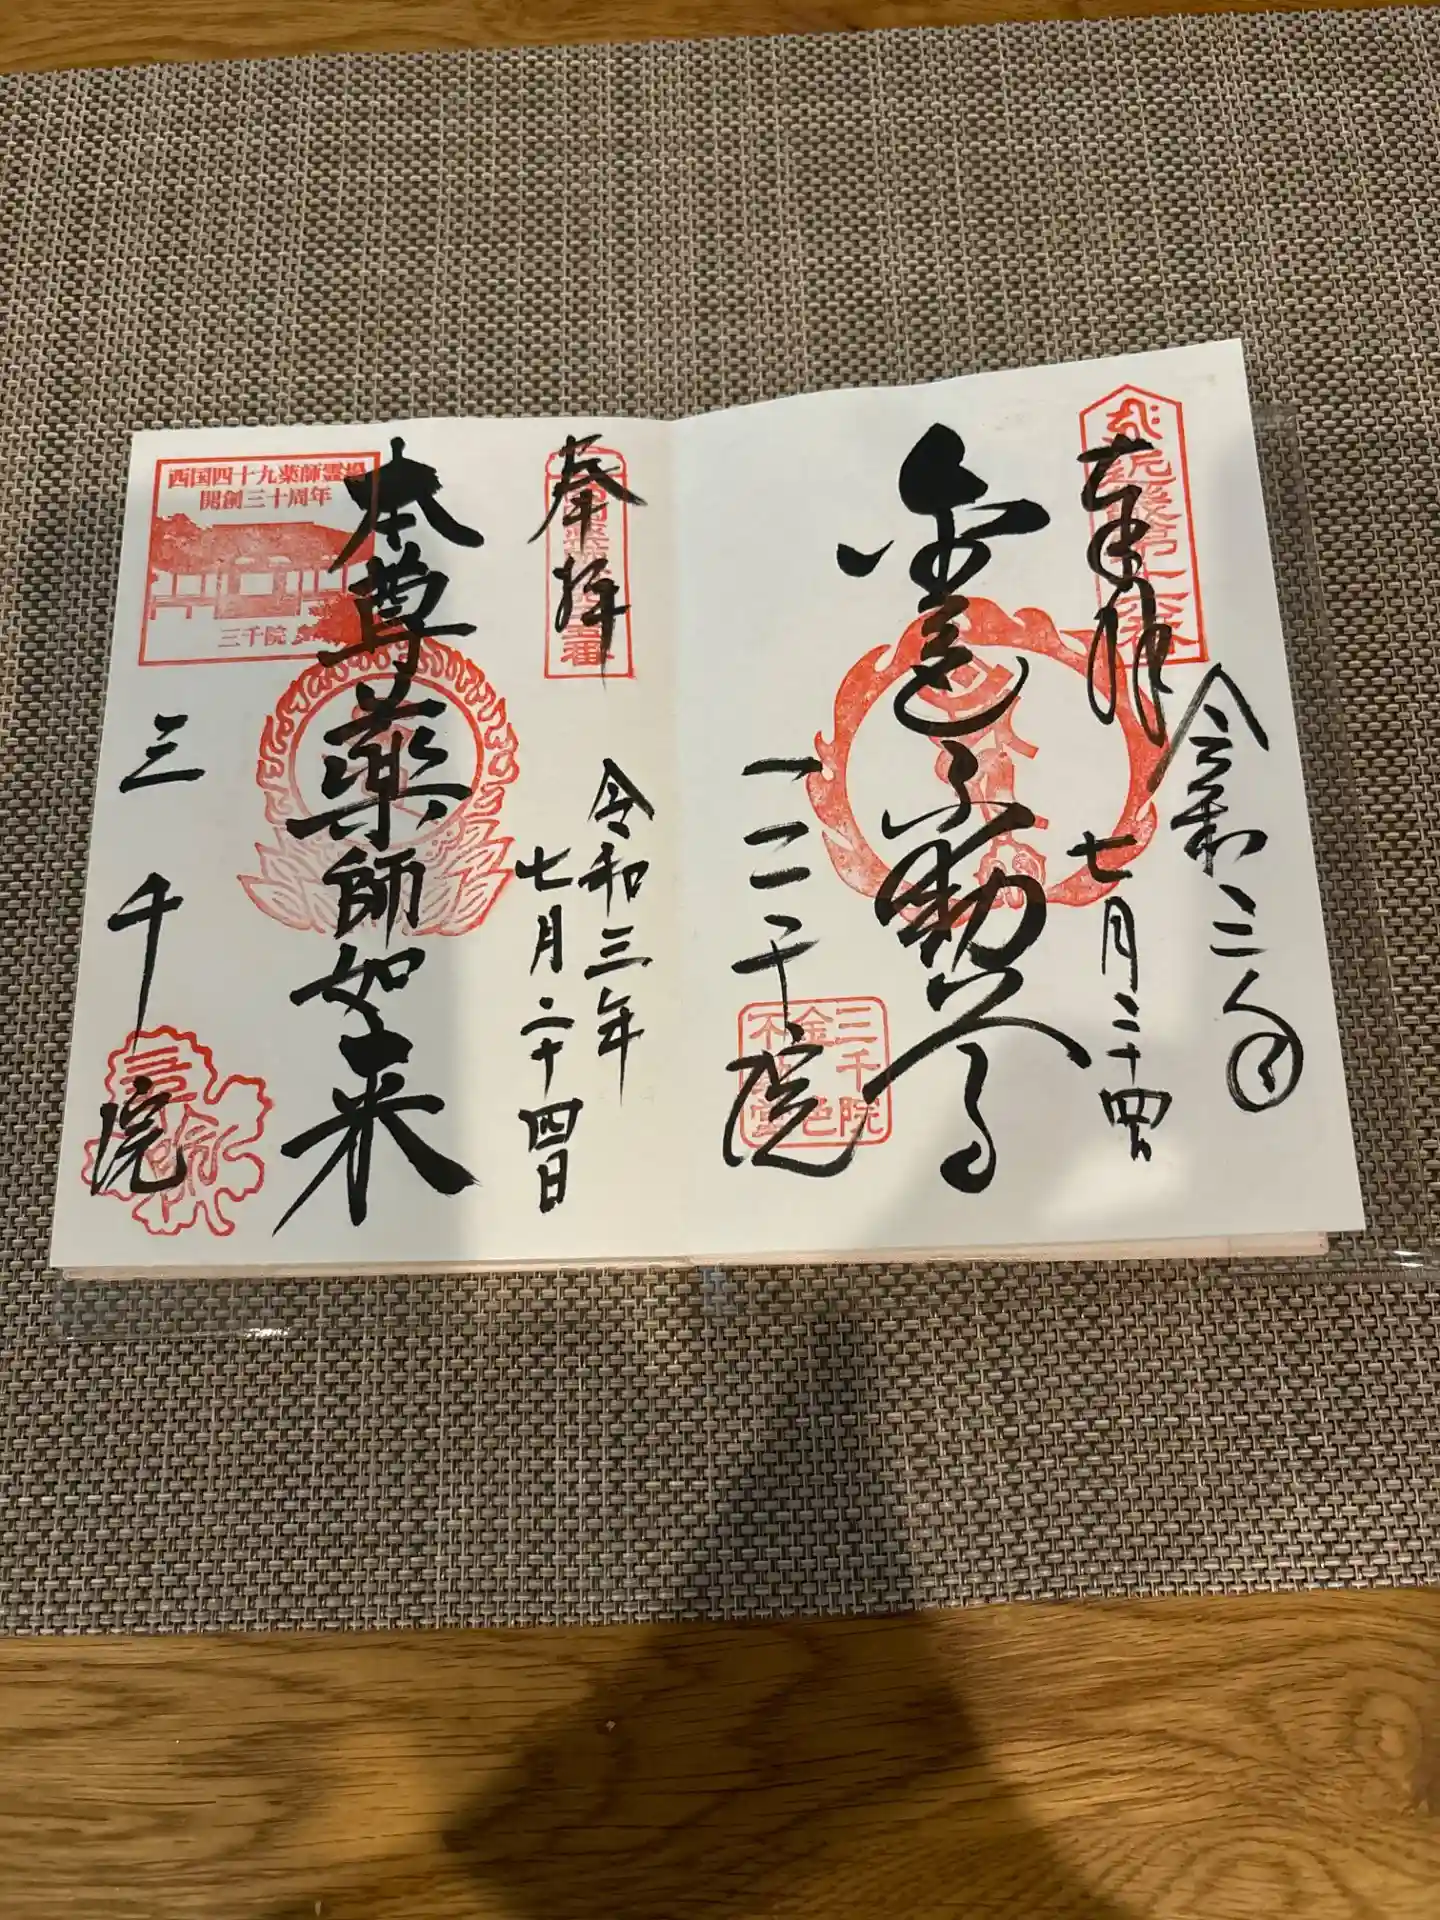 奉拝
令和三年
七月二十四日
金色不動尊
三千院
三千院
金色
不動堂
奉拝
令和三年
七月二十四日
本尊薬師如来
西国四十九薬師霊場
開創三十周年
三千院
三千院